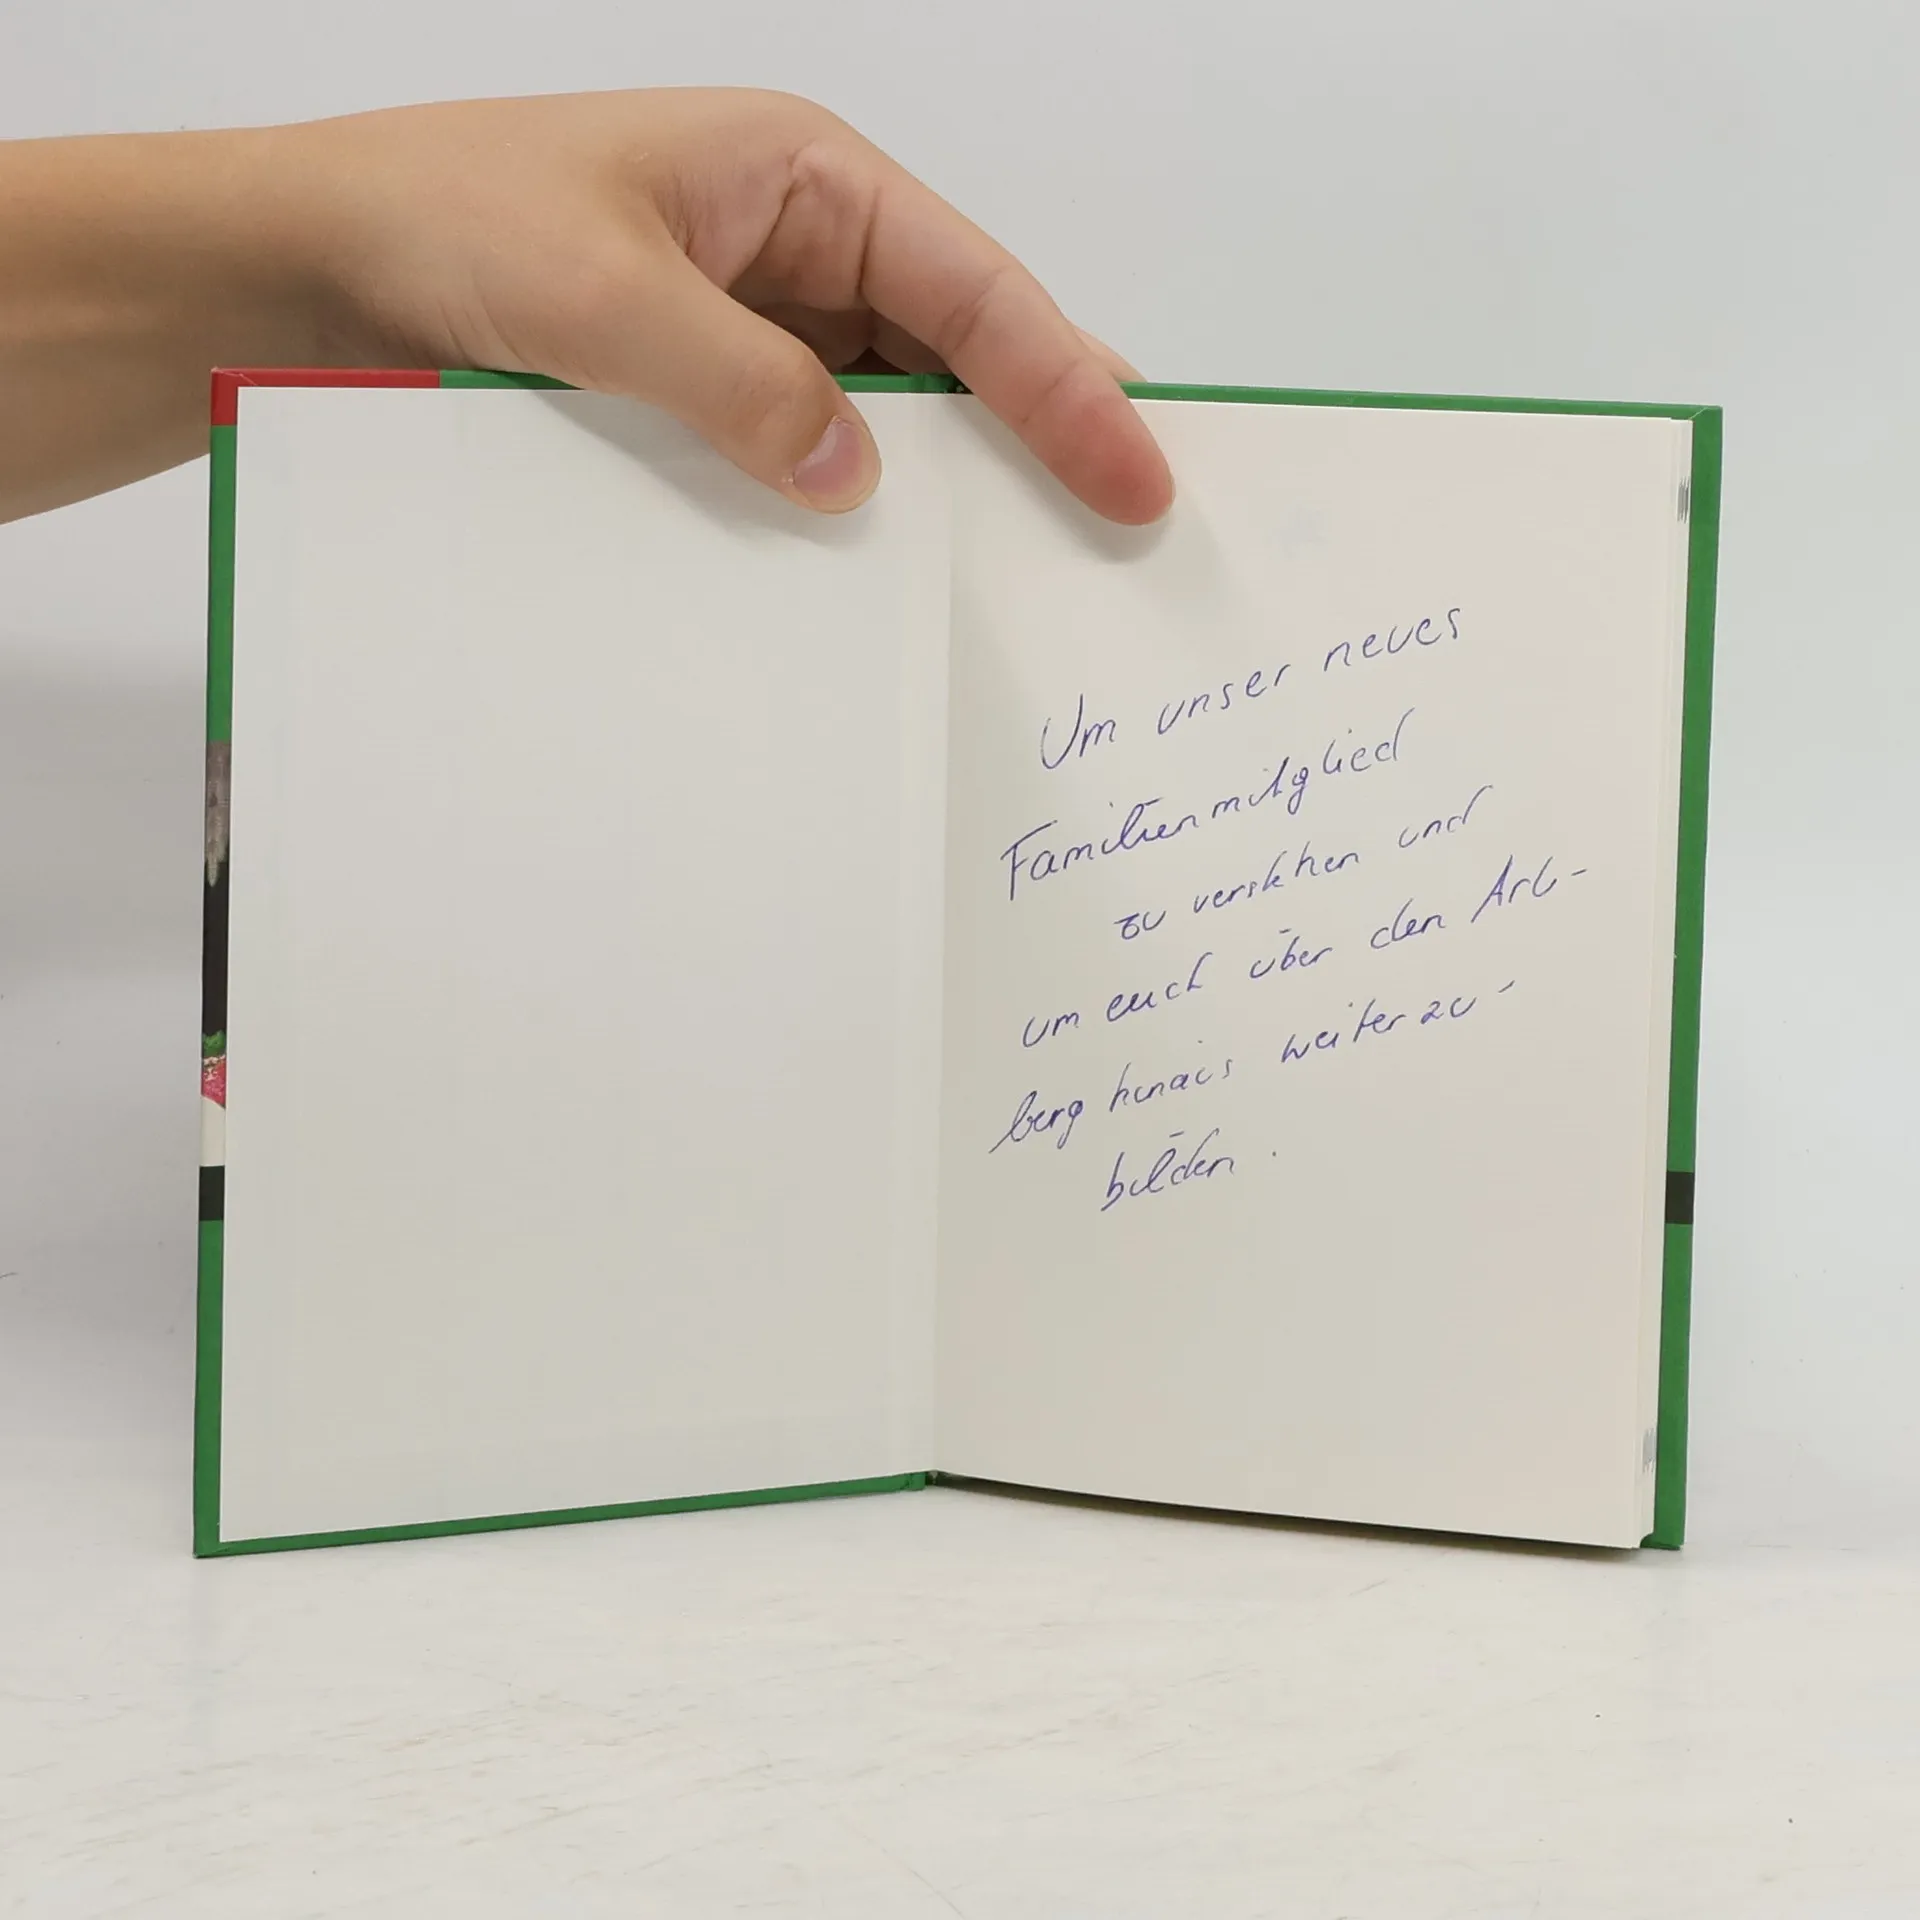 Um unser neues
Familienmitglied
zu verstehen und
um euch über den Arl-
berg hinaus weiterzu-
bilden.